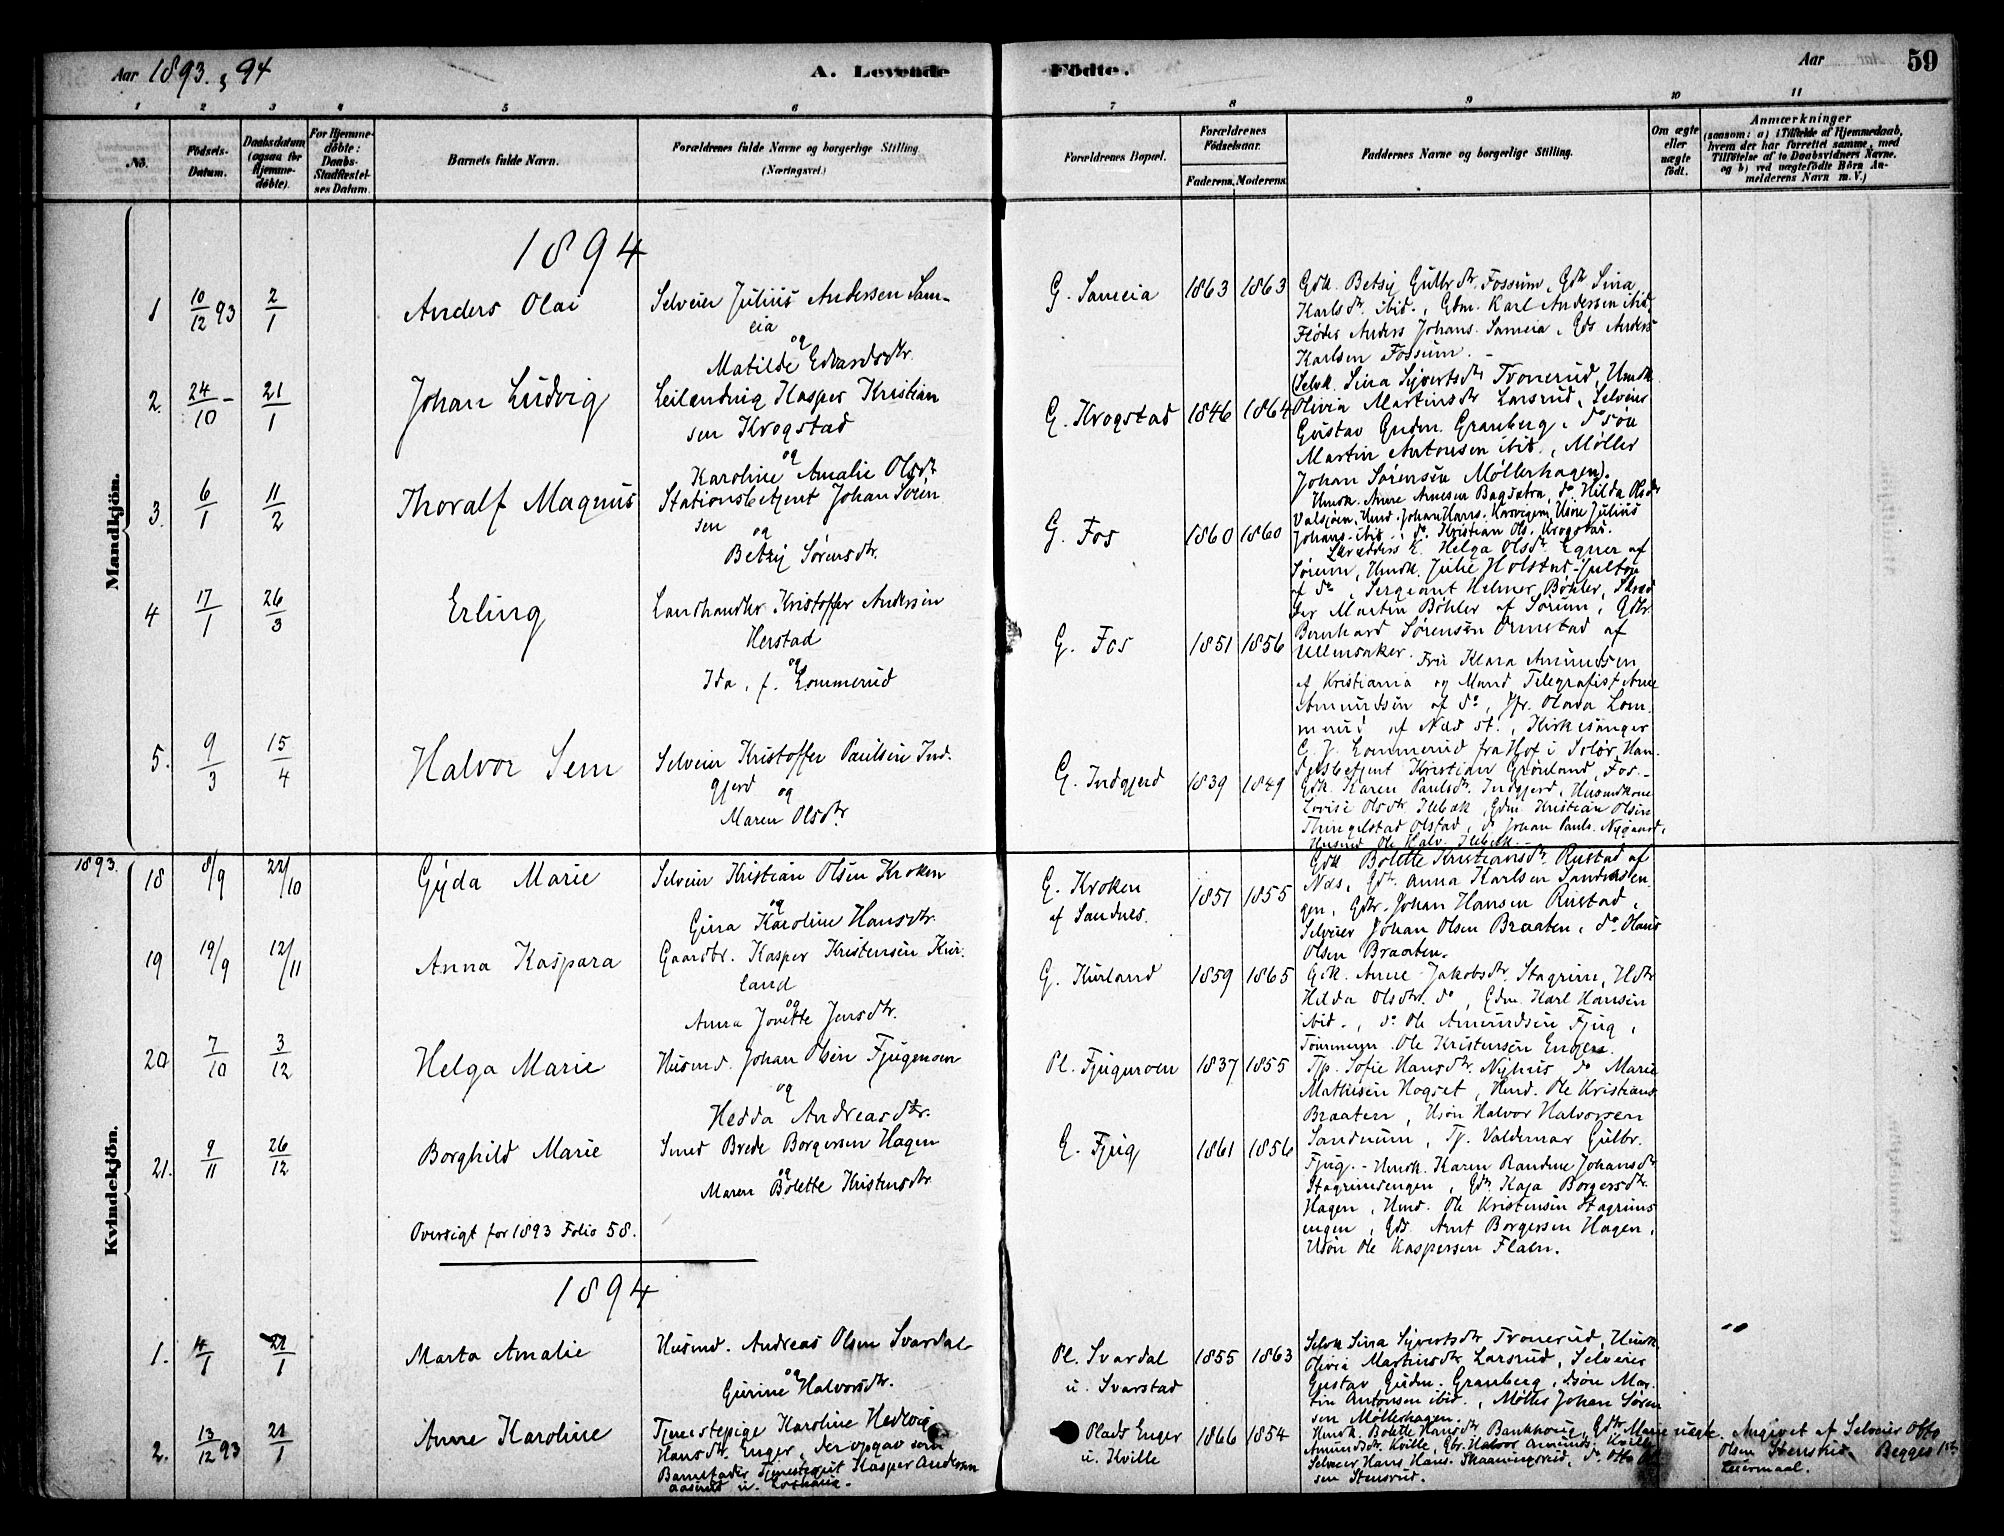 Aar 1893 & 94
A. Levende
Födte.
Aar
59
1 2 3 4 5 6 7 8 9 10 11
No.
Födsels-
Datum.
Daabsdatum
(ogsaa for
Hjemme-
døbte).
For Hjemme-
døbte:
Daabs-
Stadfæstel-
ses Datum.
Barnets fulde Navn.
Forældrenes fulde Navne og borgerlige Stilling.
(Næringsvei.)
Forældrenes Bopæl.
Forældrenes
Födselsaar.
Faderens. Moderens.
Faddernes Navne og borgerlige Stilling.
Om ægte
eller
uægte
født.
Anmærkninger
(saasom: a) i Tilfælde af Hjemmedaab,
hvem der har forrettet samme, med
Tilføielse af to Daabsvidners Navne.
og b) ved uægtefödte Börn An-
melderens Navn m. V.)
Mandkjön.
1894
1 10/12 93 2/1 Anders Olai
Selveier Julius Andersen Sam-
eia
og
Matilde Edvardsdtr.
G. Sameia 1863 1863
Gdk. Betsy Gulbrdtr. Fossum, Gdtr Sina
Karlsdtr. ibid., Gdm. Karl Andersen ibid,
Anders Johans. Sameia, Gds Anders
Karlsen Fossum.
2. 24/10 - 21/1 Johan Ludvig
Leilending Kasper Kristian
sen Krogstad
og
Karoline Amalie Olsdtr
G. Krogstad 1846 1864
(Selvk. Sina Syvertsdtr Tronerud, Hmdk.
Olivia Martinsdtr Larsrud, Selveier
Gustav Gudm. Granberg, do søn
Martin Antonsen ibid, Møller
Johan Sørensen Møllerhagen).
3. 6/1 11/2 Thoralf Magnus
Stationsbetjent Johan Sören
sen
og
Betzy Sørensdtr.
G. Fos 1860 1860
Hmdk. Anne Arnesen Bagsætra, do Hilda Olsdtr
Valsjøen, Hmd. Johan Hans. Karvigen, Usøn Julius
Johans. ibid., do Kristian Ols. Krogstad.
4 17/1 26/3 Erling
Landhandler Kristoffer Andersen
Herstad
og
Ida, f. Lommerud
G. Fos 1851 1856
K. Helga Olsdtr. Egner af
Sørum, Hmdk. Julie Holstad
af do, Sergeant Helmer Bøhler,
Martin Bøhler af Sørum, Gdbr.
Bernhard Sørensen Ormstad af
Ullensaker. Fru Klara Amundsen
af Kristiania og Mand Telegrafist Arne
Amundsen af do, Jfr. Olava Lom-
merud af Næs st., Kirkesanger
C. J. Lommerud fra Hof i Solør, Han-
delsbetjent Kristian Grønland, Fos.
5. 9/3 15/4 Halvor Sem
Selveier Kristoffer Paulsen Ind-
gjerd og
Maren Olsdtr.
G. Indgjerd 1839 1849
Gdk. Karen Paulsdtr. Indgjerd, Husmdkone
Lovise Olsdtr Ilebæk, Gdm. Kristian Olsen
Thingelstad Olstad, do Johan Pauls. Nygaard,
Husmd Ole Halv. Ilebæk.
Kvindekjön.
1893.
18 8/9 22/10 Gyda Marie
Selveier Kristian Olsen Kroken
og
Gina Karoline Hansdtr.
E. Kroken
af Sandnes.
1851 1855
Gdk Bolette Kristiansdtr. Rustad af
Næs, Gdtr. Anna Karlsen Sandnesen-
gen, Gdbr. Johan Hansen Rustad,
Selveier Johan Olsen Braaten, do Olaus
Olsen Braaten.
19 19/9 12/11 Anna Kaspara
Gaardbr. Kasper Kristensen Kur-
land
og
Anna Jonette Jensdtr.
G. Kurland 1859 1865
Gdk. Anne Jakobsdtr. Stagrim, Hdtr
Hilda Olsdtr. do, Gdm. Karl Hansen
ibid., do Ole Amundsen Fjug,
Tømmerm. Ole Kristensen Enger.
20 7/10 3/12 Helga Marie
Husmd. Johan Olsen Fjugmoen
og
Hedda Andreasdtr.
Pl. Fjugmoen 1837 1855
Tjp. Sofie Hansdtr. Nyhus do Marie
Mathisen Hogset, Hmd. Ole Kristians
Braaten, Usön Halvor Halvorsen
Sandnum, Tj. Valdemar Gulbr.
Fjug.
21. 9/11 26/12 Borghild Marie
Smed Brede Borgersen Hagen
og
Maren Bolette Kristensdtr
E. Fjug 1861 1856
Hmdk. Karen Randine Johansdtr
Stagrimsengen, Gdtr Kaja Borgersdtr.
Hagen, Hmd. Ole Kristensen Stagrims
engen, Gds. Amt Borgersen Hagen,
Usön Ole Kaspersen Flaen.
Oversigt for 1893 Folio 58.
1894
1. 4/1 21/1 Marta Amalie
Husmd. Andreas Olsen Svardal
og
Gurine Halvorsdtr.
Pl. Svardal
u. Svarstad
1855 1863
Selvk Sina Syvertsdtr Tronerud, Hmdk
Olivia Martinsdtr. Larsrud, Selveier
Gustav Gudm. Granberg, søn Mar-
tin Antonsen ibid., Møller Johan Søren
sen Møllerhagen.
2. 13/12 93 21/1 Anne Karoline
Tjenestepige Karoline Hedvig
Hansdtr Enger, der opgav som
Barnefader Tjenestegut Kasper Andersen
Aaserud u.
Plads Enger
u. Kville
1866 1854
Hmdk. Bolette Hansdtr Bankhoug, Gdtr. Marie
Amundsdtr. Kville, Gbr. Halvor Amunds. Kville,
Selveier Hans Hans. Skaaningsrud, do Otto Ol-
sen Stensrud.
uægte.
Angivet af Selveier Otto
Olsen Stensrud. Begges 1ste
Leiermaal.